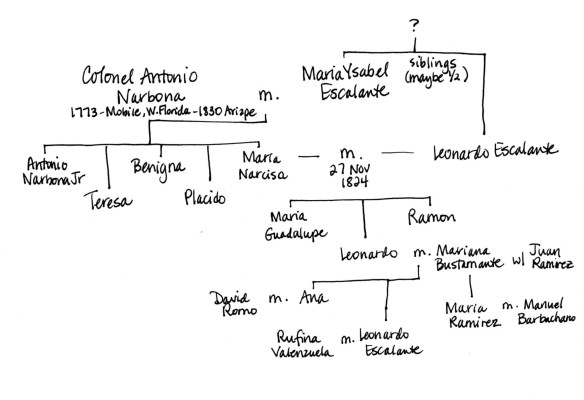 ?
Colonel Antonio
Narbona
1773-Mobile, W. Florida-1830 Arizpe
m.
Maria Ysabel
Escalante
siblings
(maybe 1/2)
Antonio
Narbona Jr
Teresa
Benigna
Placido
María
Narcisa
m.
27 Nov
1824
Leonardo Escalante
Maria
Guadalupe
Ramon
Leonardo m. Mariana
Bustamante
w/ Juan
Ramirez
David
Romo
m. Ana
Maria
Ramirez
m. Manuel
Barbachano
Rufina
Valenzuela
m. Leonardo
Escalante